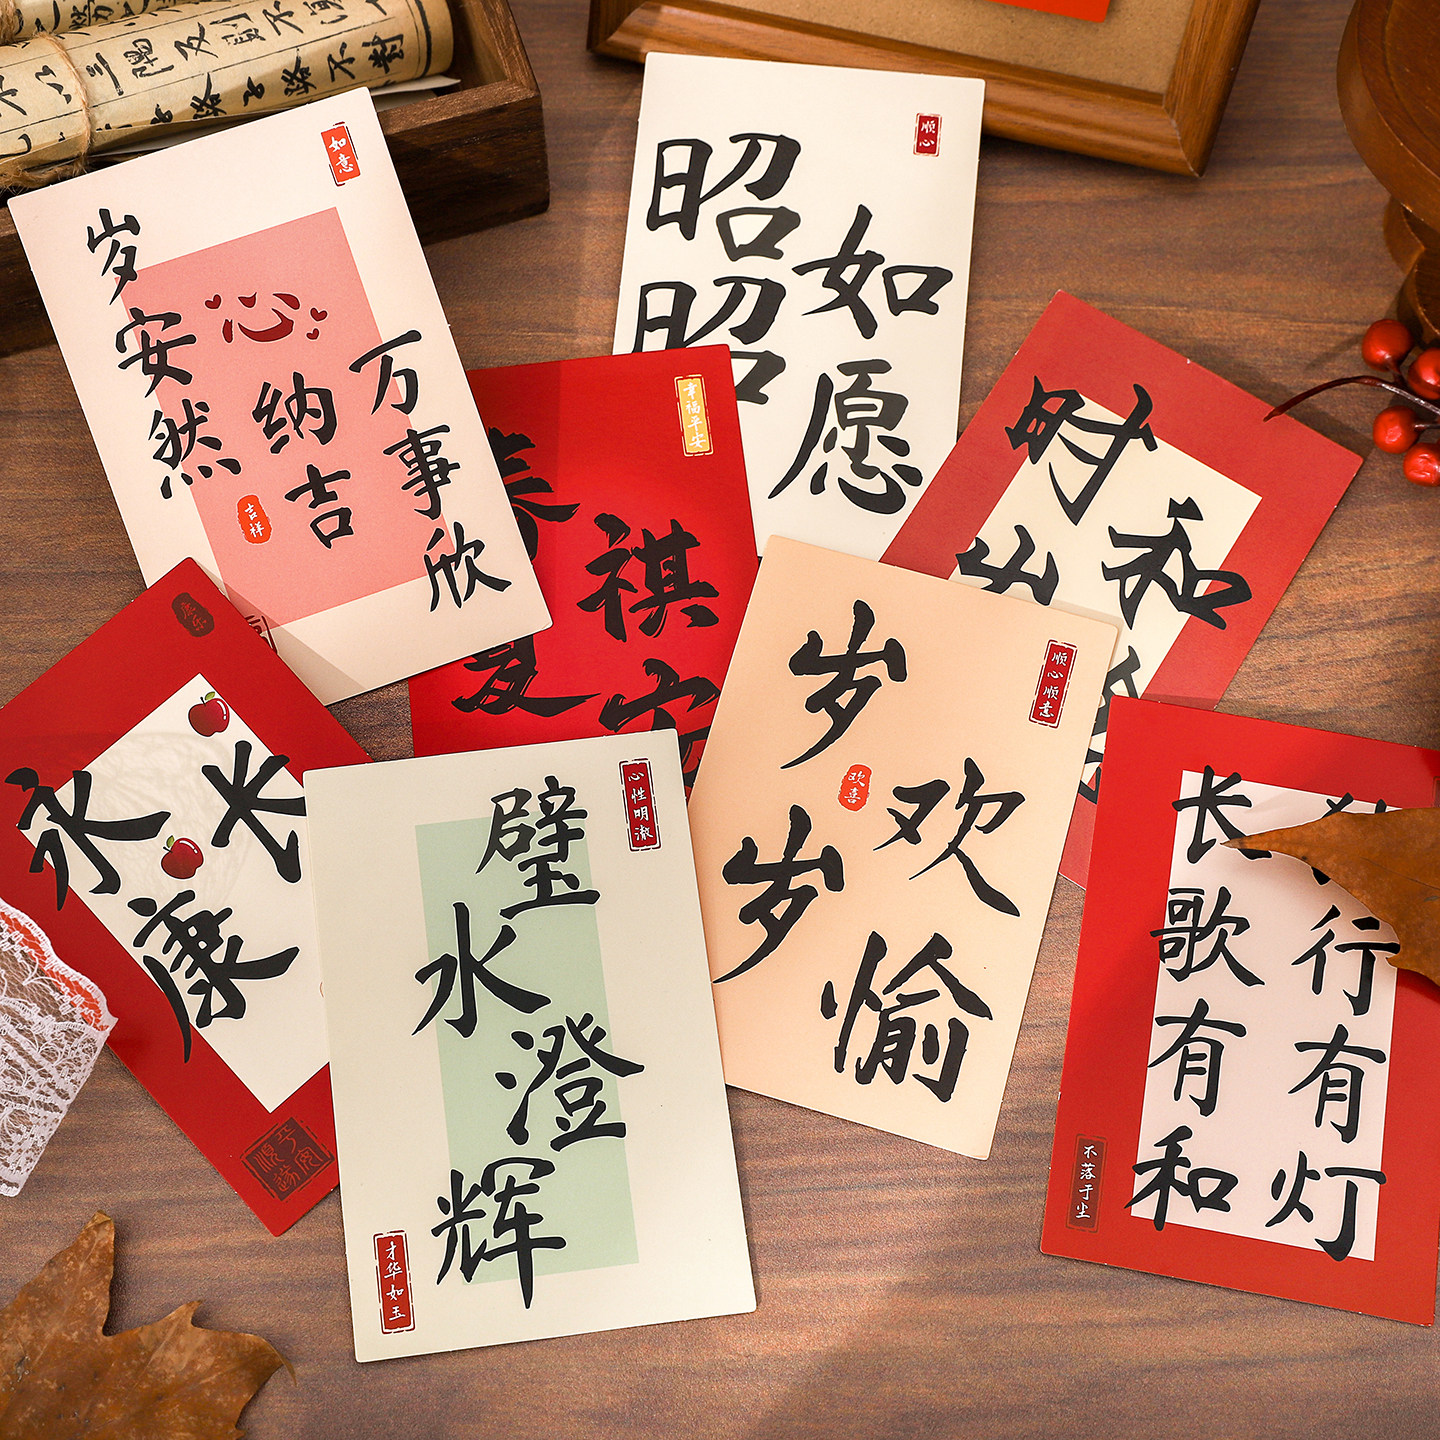 以三隅反則不
子路不對
如意
岁安然
心纳吉
万事欣
吉祥
顺心
昭昭
如愿
幸福平安
祺
时
和
永康
长
心性明澈
璧水澄辉
才华如玉
顺心顺意
岁岁
欢愉
欢喜
长歌有和
行有灯
不落于尘